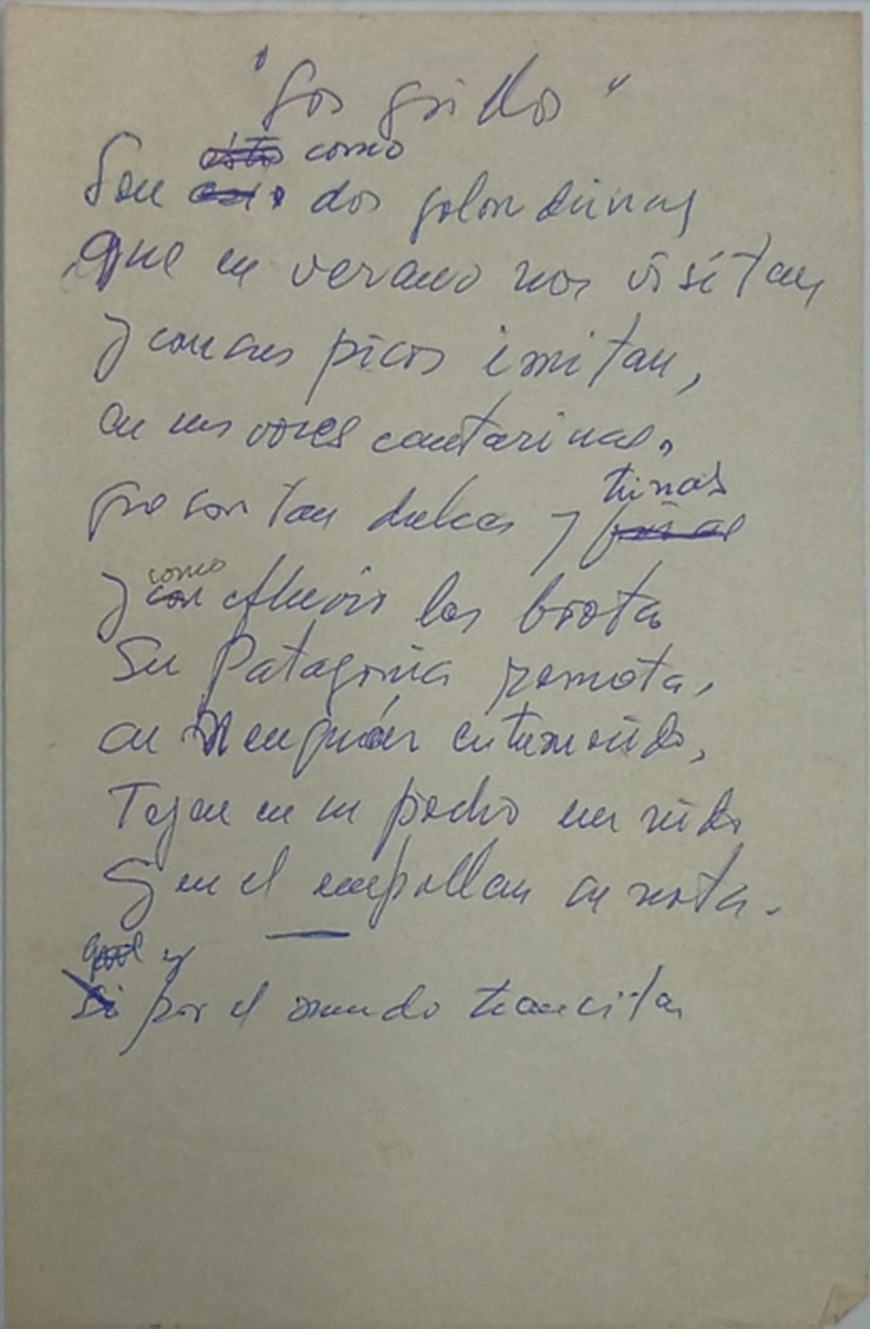 "Los grillos"
como
Son dos golondinas
Que en verano nos visitan
y con sus picos imitan,
en sus voces cantarinas,
que son tan dulces y finas
trinas
como
y con efluvio las brota
Su Patagonia remota,
en Neuquén entumecido,
Tejen en su pecho un nido
Y en el empollan su nota.
y
Si por el mundo transitan